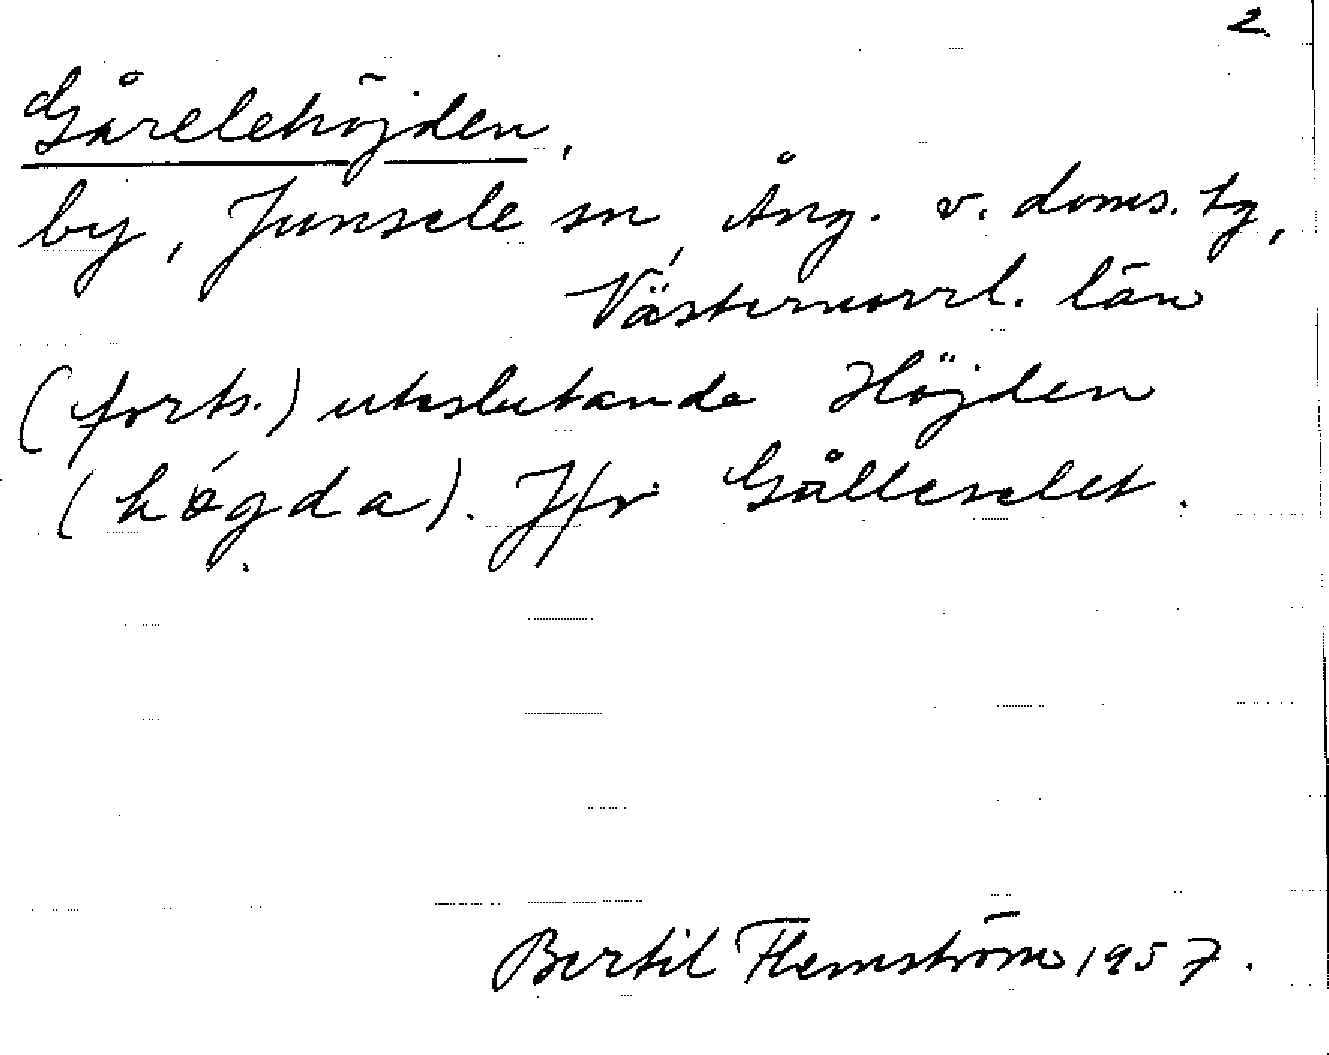 2.
Gårelehöjden,
by, Junsele sn, Ång. v. doms. tg,
Västernorrl. län
(forts.) uteslutande Höjden
(högda). Jfr Gålleselet.
Bertil Flemström 1957.